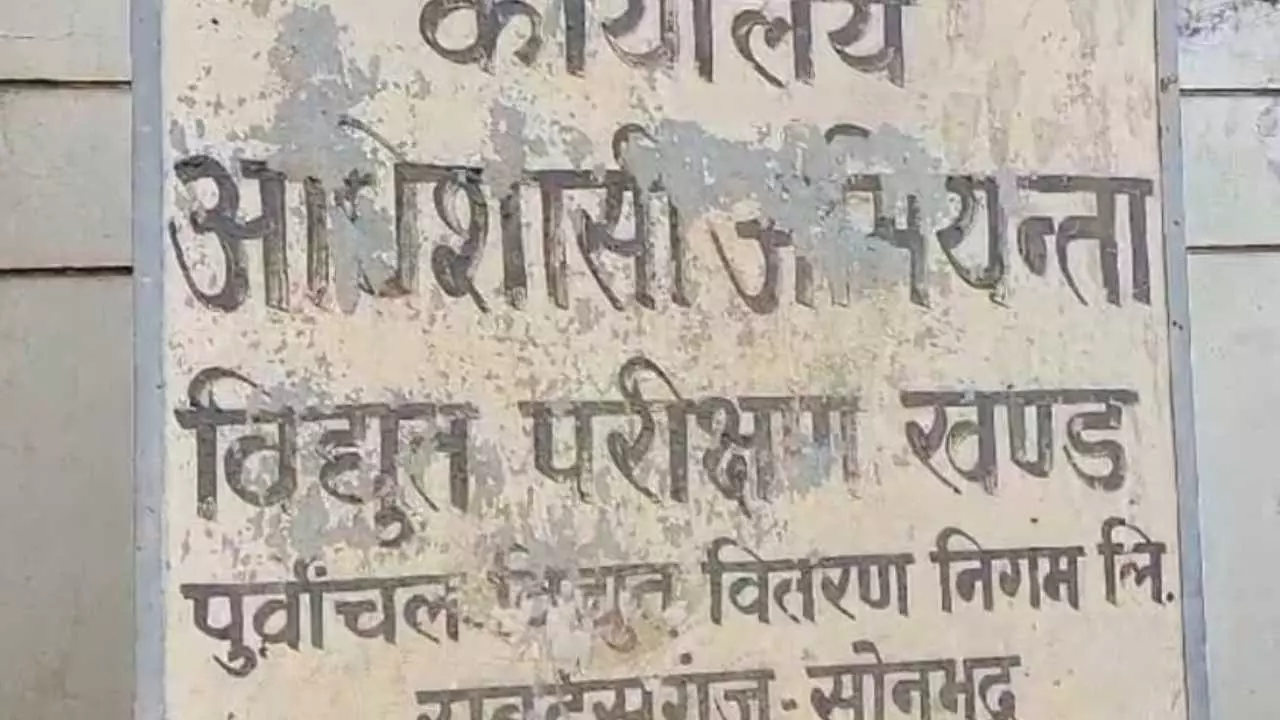 कार्यालय
अधिशासी अभियन्ता
विद्युत परीक्षण खण्ड
पुर्वांचल विद्युत वितरण निगम लि.
राबर्टसगंज - सोनभद्र